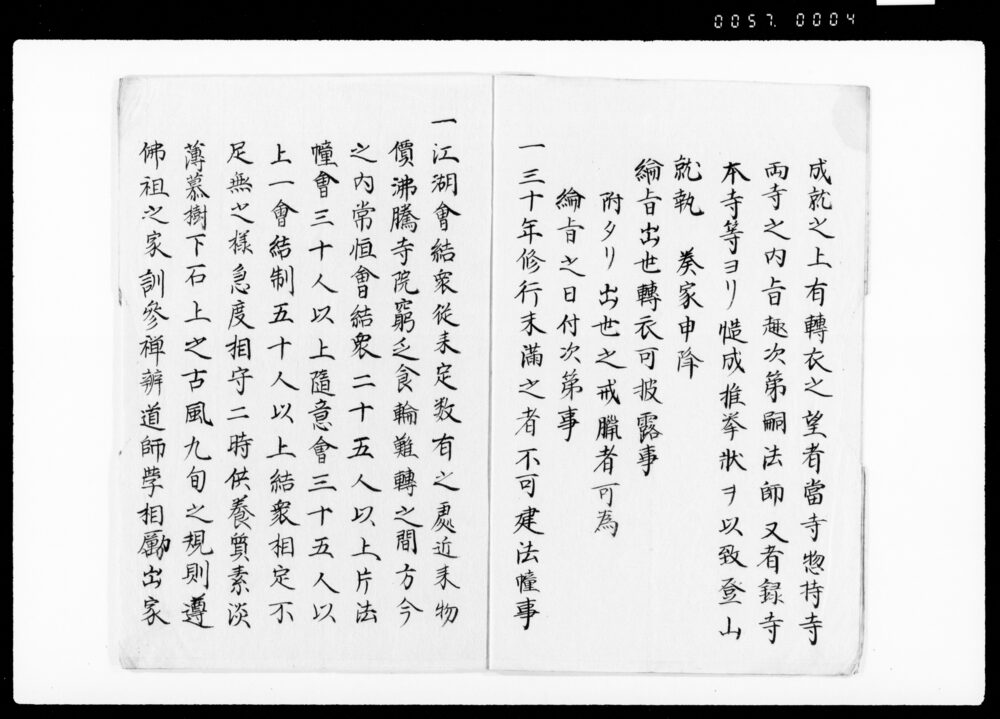 0057.0004
成就之上有轉衣之望者當寺惣持寺
両寺之内旨趣次第嗣法師又者録寺
本寺等ヨリ慥成推挙状ヲ以致登山
就執　奏家申降
綸旨出世轉衣可披露事
附タリ出世之戒臘者可為
綸旨之日付次第事
一三十年修行未満之者不可建法幢事
一江湖會結衆従来定数有之處近来物
價沸騰寺院窮乏食輪難轉之間方今
之内常恒會結衆二十五人以上片法
幢會三十人以上隨意會三十五人以
上一會結制五十人以上結衆相定不
足無之様急度相守二時供養質素淡
薄慕樹下石上之古風九旬之規則遵
佛祖之家訓參禅辨道師學相勵出家